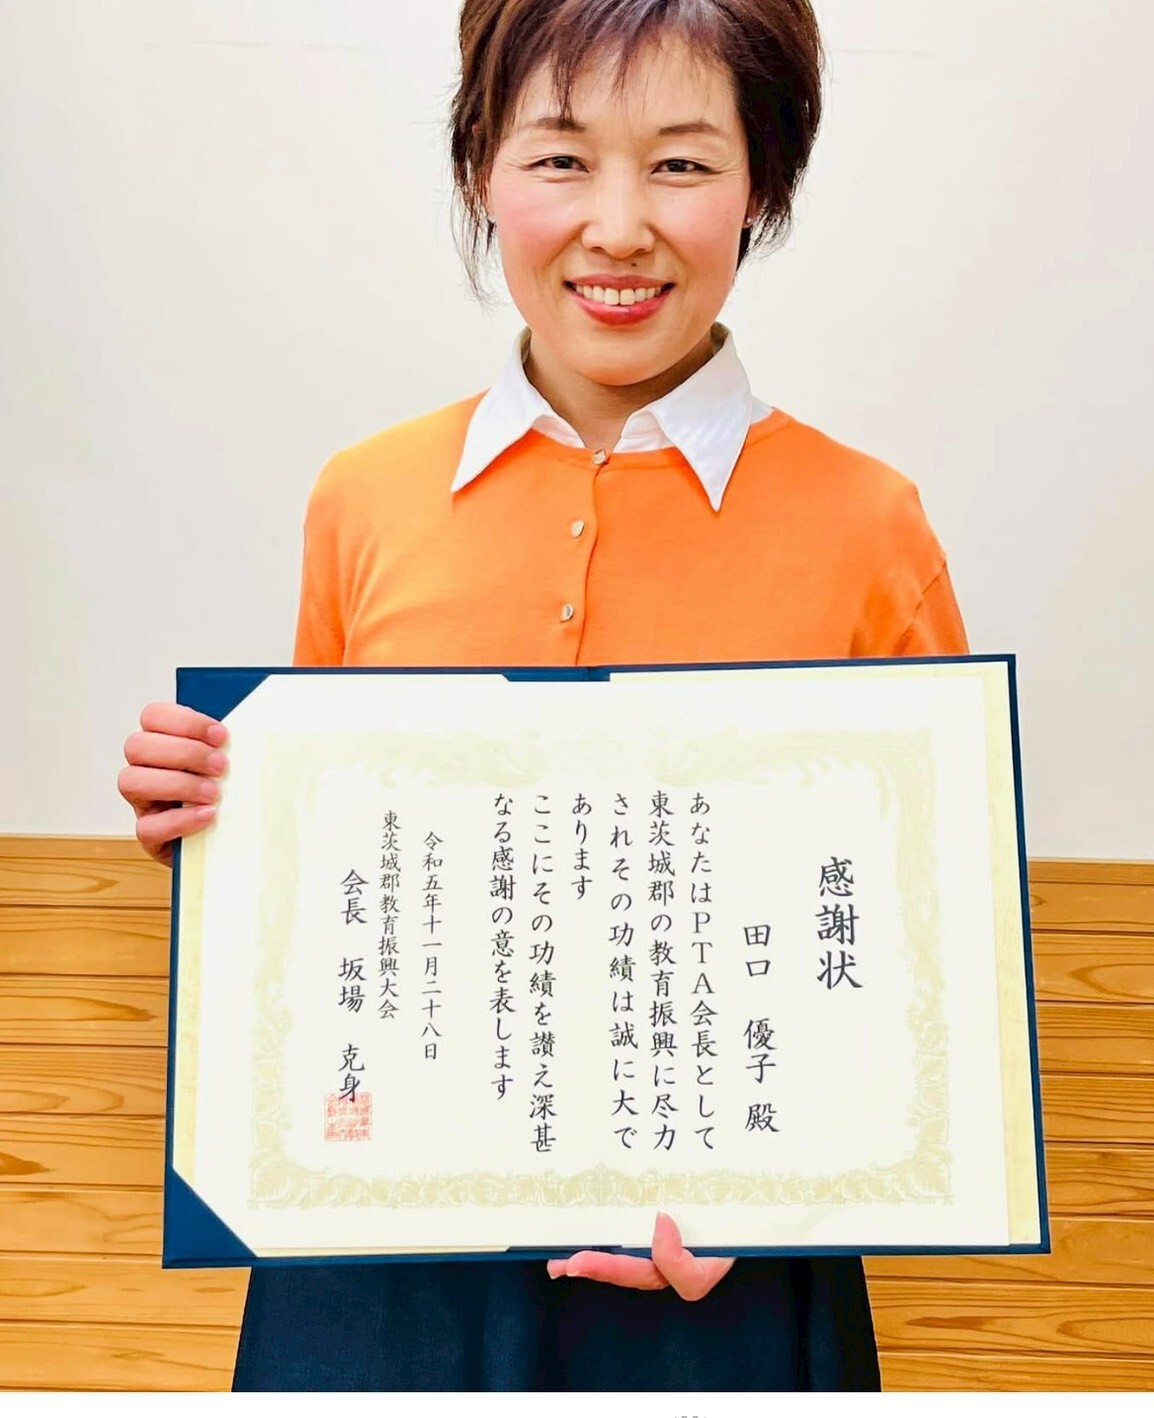 感謝状
田口 優子 殿
あなたはPTA会長として
東茨城郡の教育振興に尽力
されその功績は誠に大で
あります
ここにその功績を讃え深甚
なる感謝の意を表します
令和五年十一月二十八日
東茨城郡教育振興大会
会長 坂場 克身